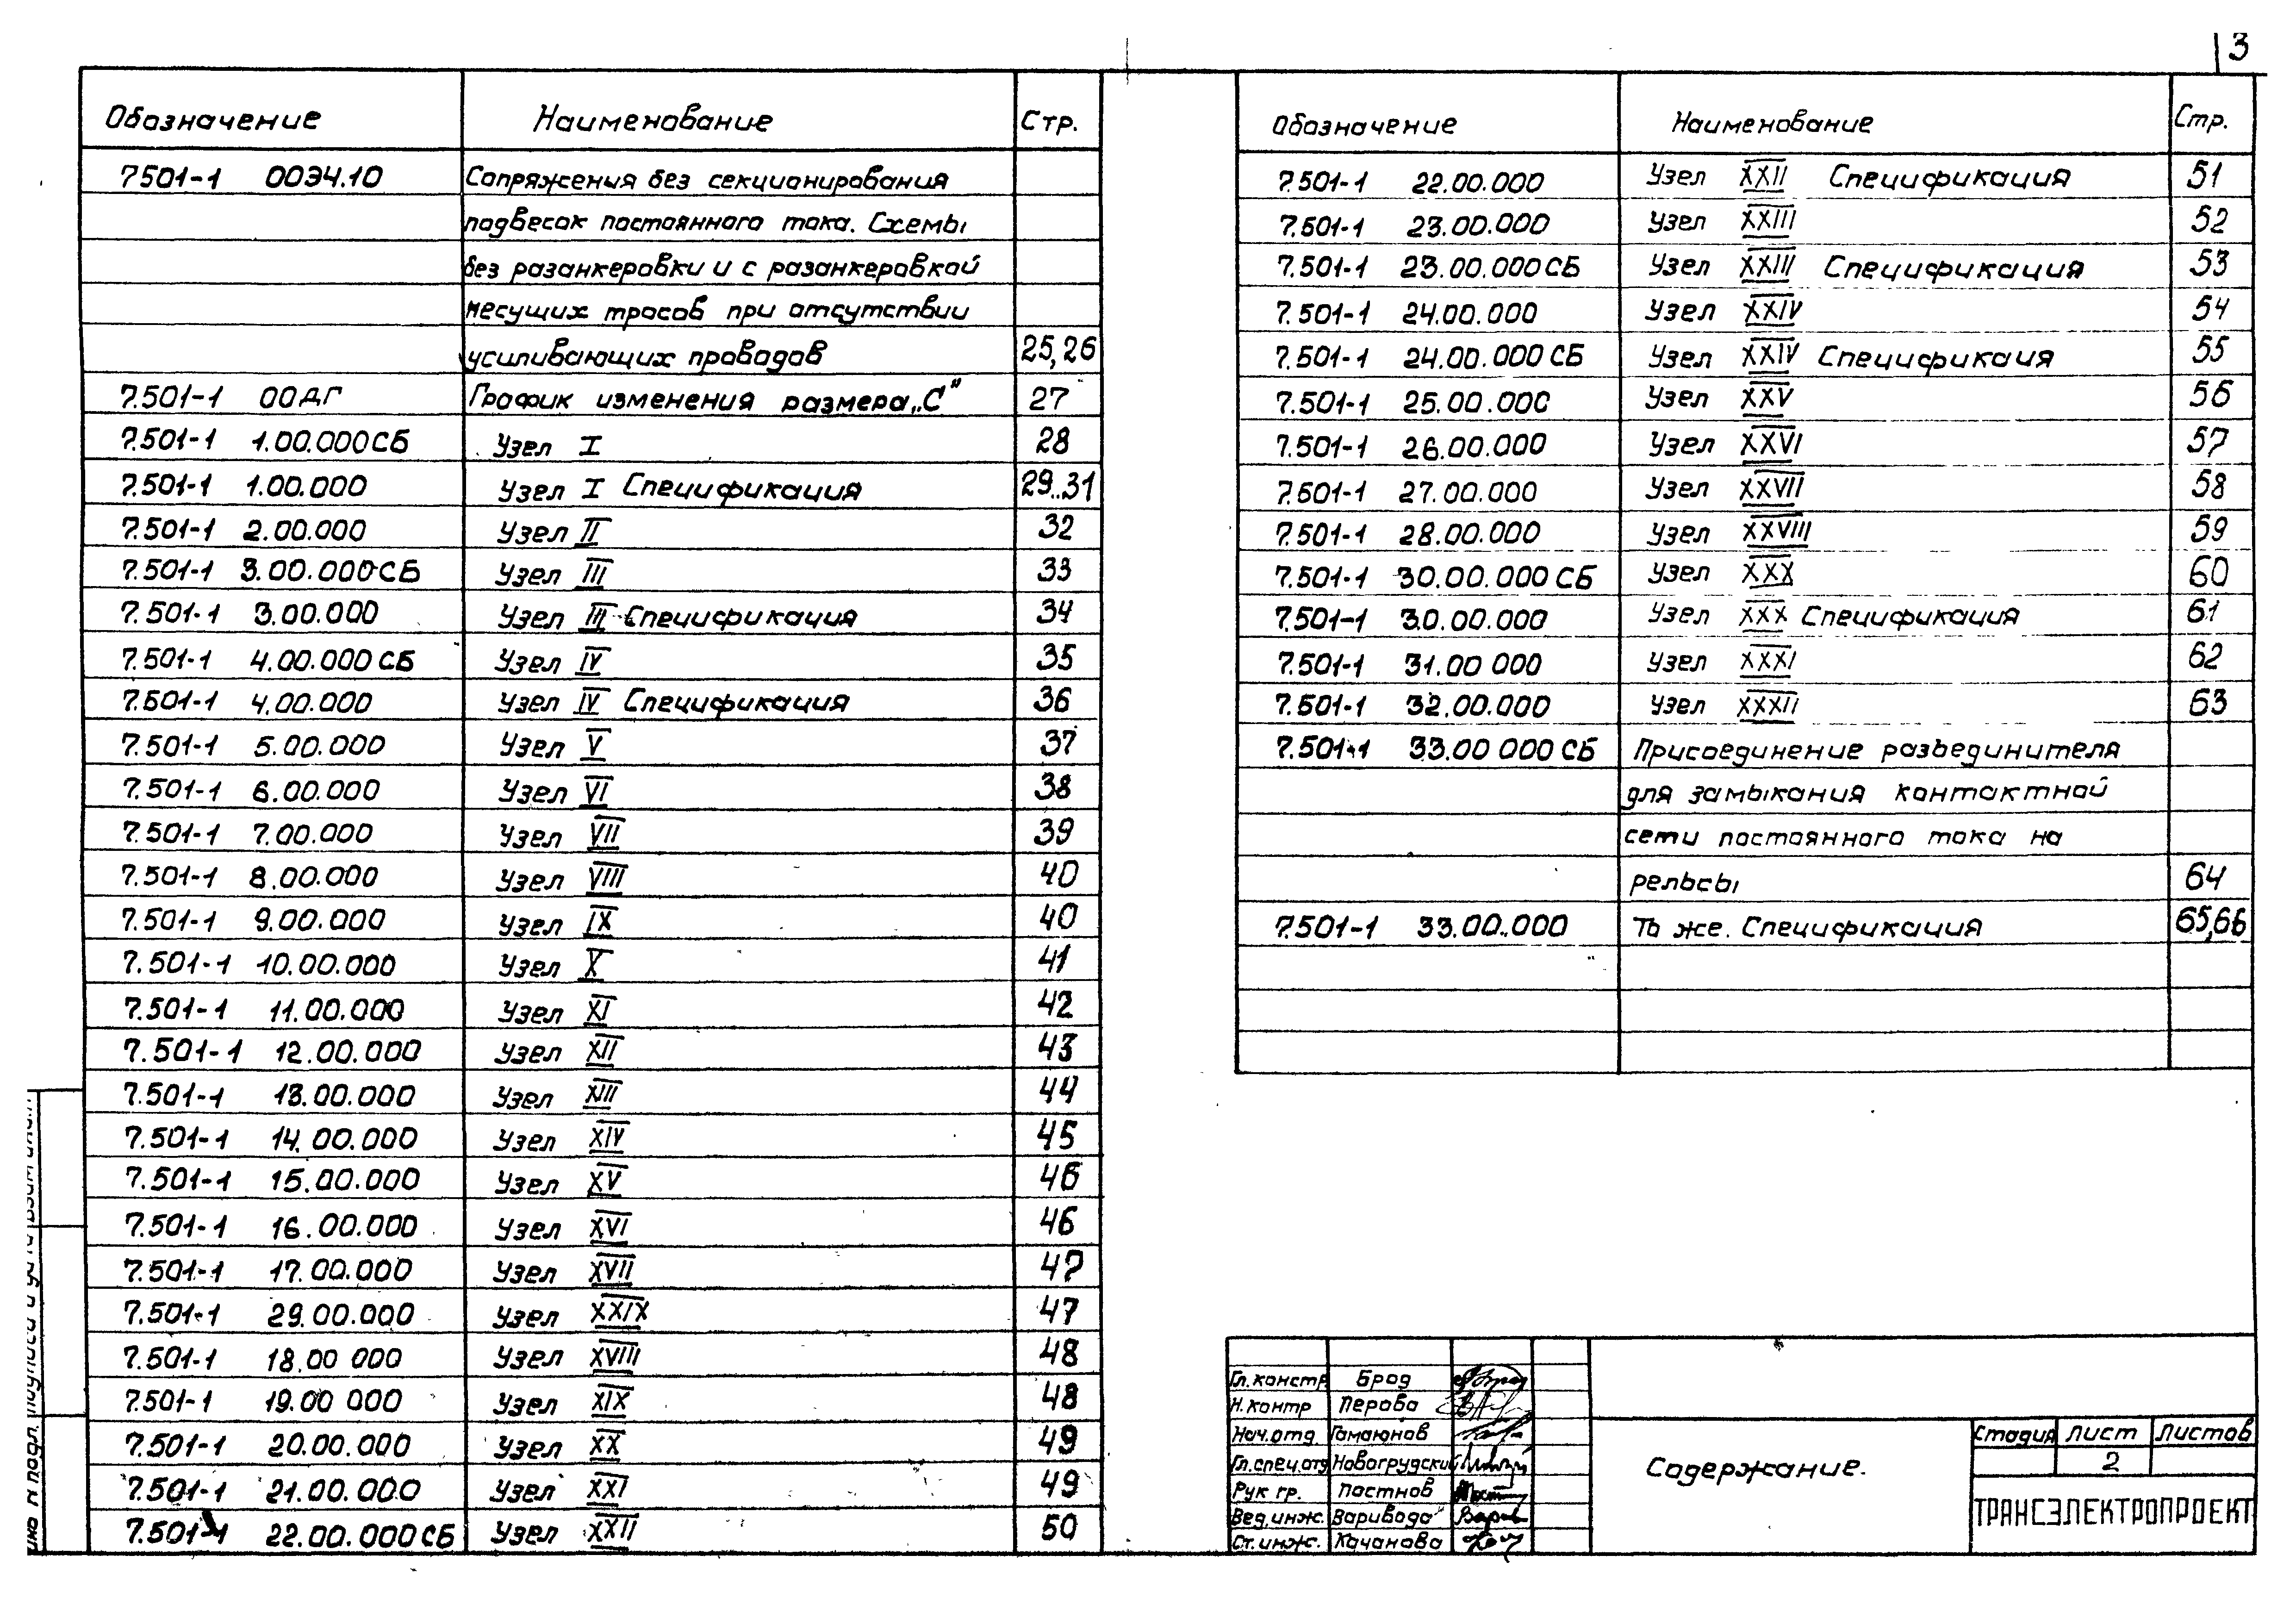 3
Обозначение Наименование Стр.
7501-1 00Э4.10 Сопряжения без секционирования
подвесок постоянного тока. Схемы
без разанкеровки и с разанкеровкой
несущих тросов при отсутствии
усиливающих проводов 25,26
7.501-1 00ДГ График изменения размера „С" 27
7.501-1 1.00.000СБ Узел I 28
7.501-1 1.00.000 Узел I Спецификация 29..31
7.501-1 2.00.000 Узел II 32
7.501-1 3.00.000СБ Узел III 33
7.501-1 3.00.000 Узел III Спецификация 34
7.501-1 4.00.000СБ Узел IV 35
7.501-1 4.00.000 Узел IV Спецификация 36
7.501-1 5.00.000 Узел V 37
7.501-1 6.00.000 Узел VI 38
7.501-1 7.00.000 Узел VII 39
7.501-1 8.00.000 Узел VIII 40
7.501-1 9.00.000 Узел IX 40
7.501-1 10.00.000 Узел X 41
7.501-1 11.00.000 Узел XI 42
7.501-1 12.00.000 Узел XII 43
7.501-1 13.00.000 Узел XIII 44
7.501-1 14.00.000 Узел XIV 45
7.501-1 15.00.000 Узел XV 46
7.501-1 16.00.000 Узел XVI 46
7.501-1 17.00.000 Узел XVII 47
7.501-1 29.00.000 Узел XXIX 47
7.501-1 18.00 000 Узел XVIII 48
7.501-1 19.00 000 Узел XIX 48
7.501-1 20.00.000 Узел XX 49
7.501-1 21.00.000 Узел XXI 49
7.501-1 22.00.000СБ Узел XXII 50
Обозначение Наименование Стр.
7.501-1 22.00.000 Узел XXII Спецификация 51
7.501-1 23.00.000 Узел XXIII 52
7.501-1 23.00.000СБ Узел XXIII Спецификация 53
7.501-1 24.00.000 Узел XXIV 54
7.501-1 24.00.000СБ Узел XXIV Спецификаия 55
7.501-1 25.00.000 Узел XXV 56
7.501-1 26.00.000 Узел XXVI 57
7.501-1 27.00.000 Узел XXVII 58
7.501-1 28.00.000 Узел XXVIII 59
7.501-1 30.00.000СБ Узел XXX 60
7.501-1 30.00.000 Узел XXX Спецификация 61
7.501-1 31.00 000 Узел XXXI 62
7.501-1 32.00.000 Узел XXXII 63
7.501-1 33.00 000 СБ Присоединение разъединителя
для замыкания контактной
сети постоянного тока на
рельсы 64
7.501-1 33.00.000 То же. Спецификация 65,66
Гл.констр Брод
Н.контр Перова
Нач.отд Гамаюнов
Гл.спец.отд Новогрудский
Рук гр. Постнов
Вед.инж. Варивода
Ст.инж. Качанова
Содержание.
Стадия Лист Листов
2
ТРАНСЭЛЕКТРОПРОЕКТ
N подл. подпись и дата